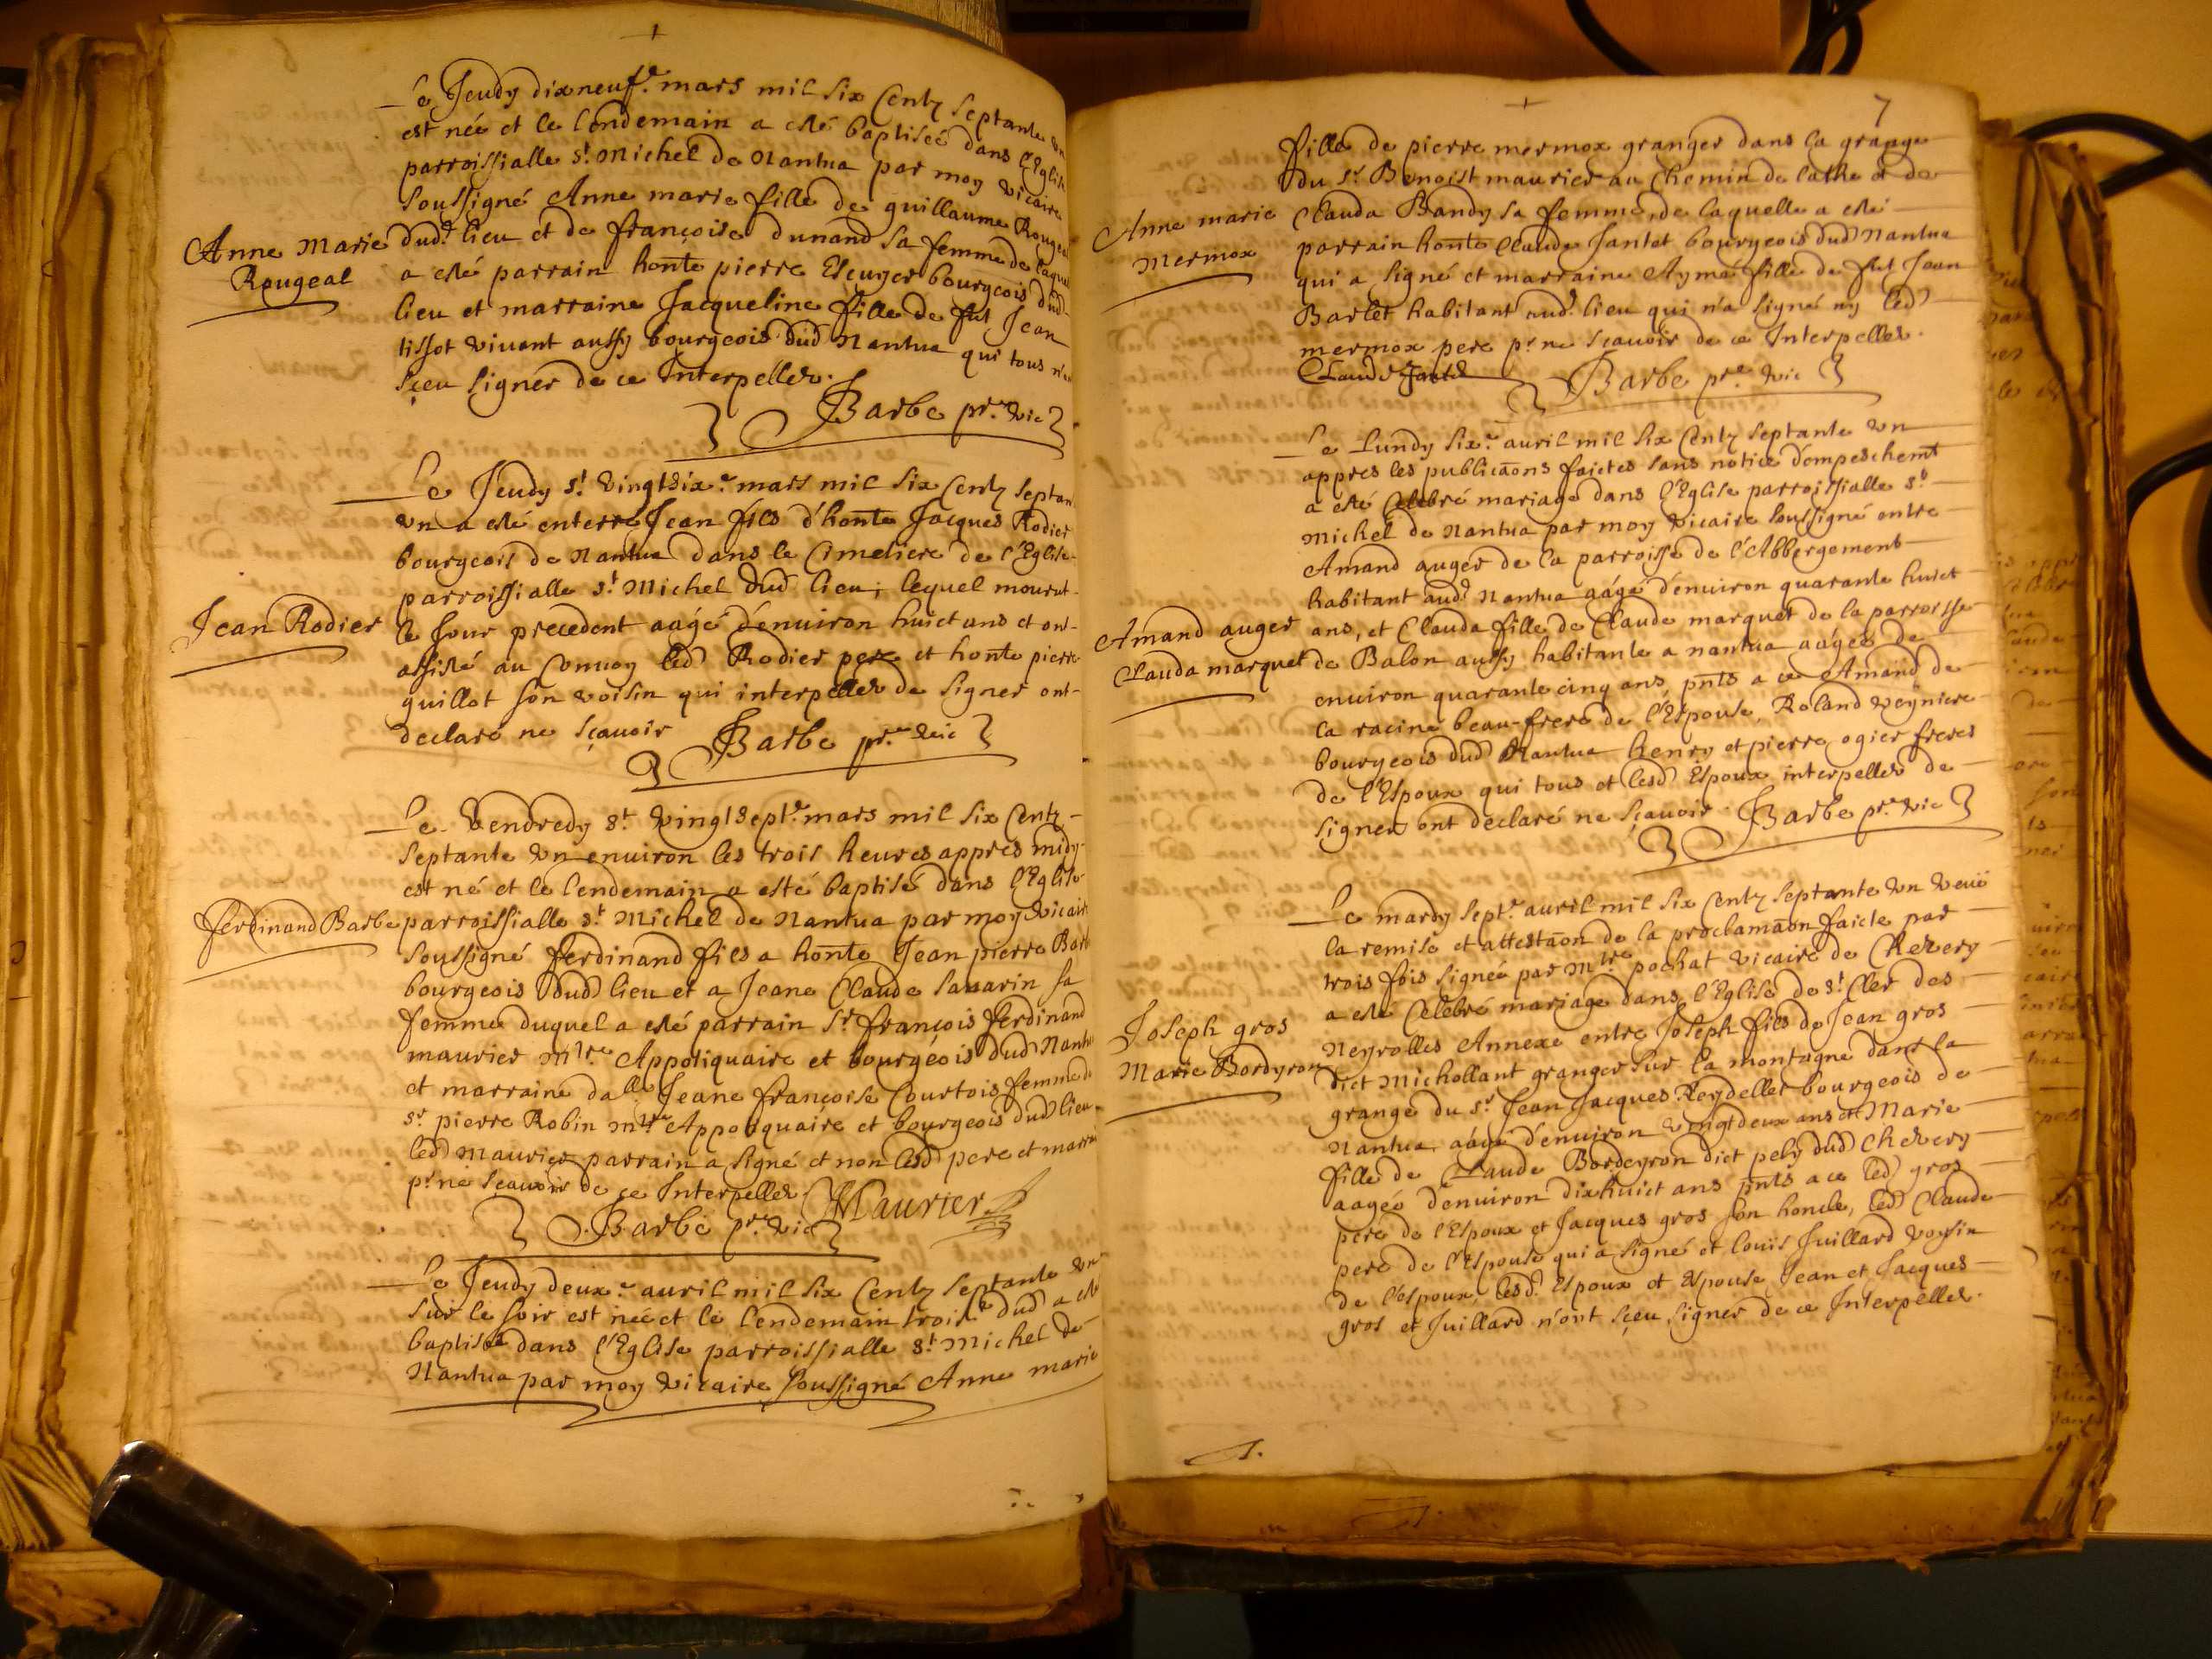 Le Jeudy dixneuf.e mars mil six Centz septante un
est née et le lendemain a esté baptiseé dans l'Eglise
parroissialle s.t Michel de Nantua par moy vicaire
soussigné Anne marie fille de guillaume Rougeal
Anne Marie Rougeal
dud.t lieu et de françoise dunand sa femme de laquel
a esté parrain hon̄te pierre Escuyer bourgeois dud
lieu et marraine Jacqueline fille de fut Jean
tissot vivant aussy bourgeois dud Nantua qui tous n'on
sçeu signer de ce Interpellez.
Barbe pr.e vic
Le Jeudy s.t vingtsix.e mars mil six Centz septan
un a esté enterré Jean fils d'hon̄te Jacques Rodier
bourgeois de Nantua dans le Cimetiere de l'Eglise
parroissialle s.t Michel dud lieu; lequel mourut
Jean Rodier
le Jour precedent aagé d'enuiron huict ans et ont
assisté au Conuoy led Rodier pere et hon̄te pierre
guillot son voisin qui interpellez de signer ont
declaré ne sçauoir Barbe pr.e vic
Le Vendredy s.t vingtsept.e mars mil six Centz
septante un enuiron les trois heures appres midy
est né et le lendemain a esté baptisé dans l'Eglise
Ferdinand Barbe
parroissialle s.t Michel de Nantua par moy vicaire
soussigné ferdinand fils a hon̄te Jean pierre Barb
bourgeois dud lieu et a Jeane Claude sauarin sa
femme duquel a esté parrain s.r françois ferdinand
maurier m.tre Appotiquaire et bourgeois dud Nantu
et marraine da.lle Jeane françoise Courtois femme d
s.r pierre Robin m.tre Appotiquaire et bourgeois dud lieu
led Maurier parrain a signé et non lesd pere et marrai
p.r ne sçauoir de ce Interpellez. Maurier
Barbe pr.e vic
Le Jeudy deux.e auril mil six Centz septante un
sur le soir est née et le lendemain trois.e dud a esté
baptisée dans l'Eglise parroissialle s.t Michel de
Nantua par moy vicaire soussigné Anne marie
7
fille de pierre mermox granger dans la grange
du s.r Benoist maurier au Chemin de lathe et de
Anne marie Mermox
Clauda Bandy sa femme, de laquelle a esté
parrain hon̄te Claude Jantet bourgeois dud Nantua
qui a signé et marraine Aymé fille de fut Jean
Barlet habitant aud.t lieu qui n'a signé ny led
mermox pere p.r ne sçauoir de ce Interpellez.
Claude Jantet Barbe pr.e vic
Le Lundy six.e auril mil six Centz septante un
appres les publicaōns faictes sans notice d'empeschemt
a esté Celebré mariage dans l'Eglise parroissialle s.t
michel de Nantua par moy vicaire soussigné entre
Amand auger de la parroisse de l'Abbergement
habitant aud.t Nantua aágé d'enuiron quarante huict
Amand auger
Clauda marquet
ans, et Clauda fille de Claude marquet de la parroisse
de Balon aussy habitante a nantua aágée de
enuiron quarante cinq ans, pn̄ts a ce Amand de
la racine beau-frere de l'Espouse, Roland veyniere
bourgeois dud Nantua henry et pierre ogier freres
de l'Espoux qui tous et lesd Espoux interpellez de
signer ont declaré ne sçauoir. Barbe pr.e vic
Le mardy sept.e auril mil six Centz septante un veüe
la remise et attestaōn de la proclamaōn faicte par
trois fois signée par m.tre pochat vicaire de Chevery
a esté Celebré mariage dans l'Eglise de s.t Cler des
Joseph gros
Marie Bordyron
Neyrolles Annexe entre Joseph fils de Jean gros
dict Michollant granger sur la montagne dans la
grange du s.r Jean Jacques Reydellet bourgeois de
Nantua, aágé d'enuiron vingtdeux ans et Marie
fille de Claude Bordeyron dict pely dud Chevery
aagée d'enuiron dixhuict ans pn̄ts a ce led gros
pere de l'Espoux et Jacques gros son honcle, led Claude
pere de l'Espouse qui a signé et louïs Juillard voysin
de l'espoux, lesd.t Espoux et Espouse Jean et Jacques
gros et Juillard n'ont sçeu signer de ce Interpellez.